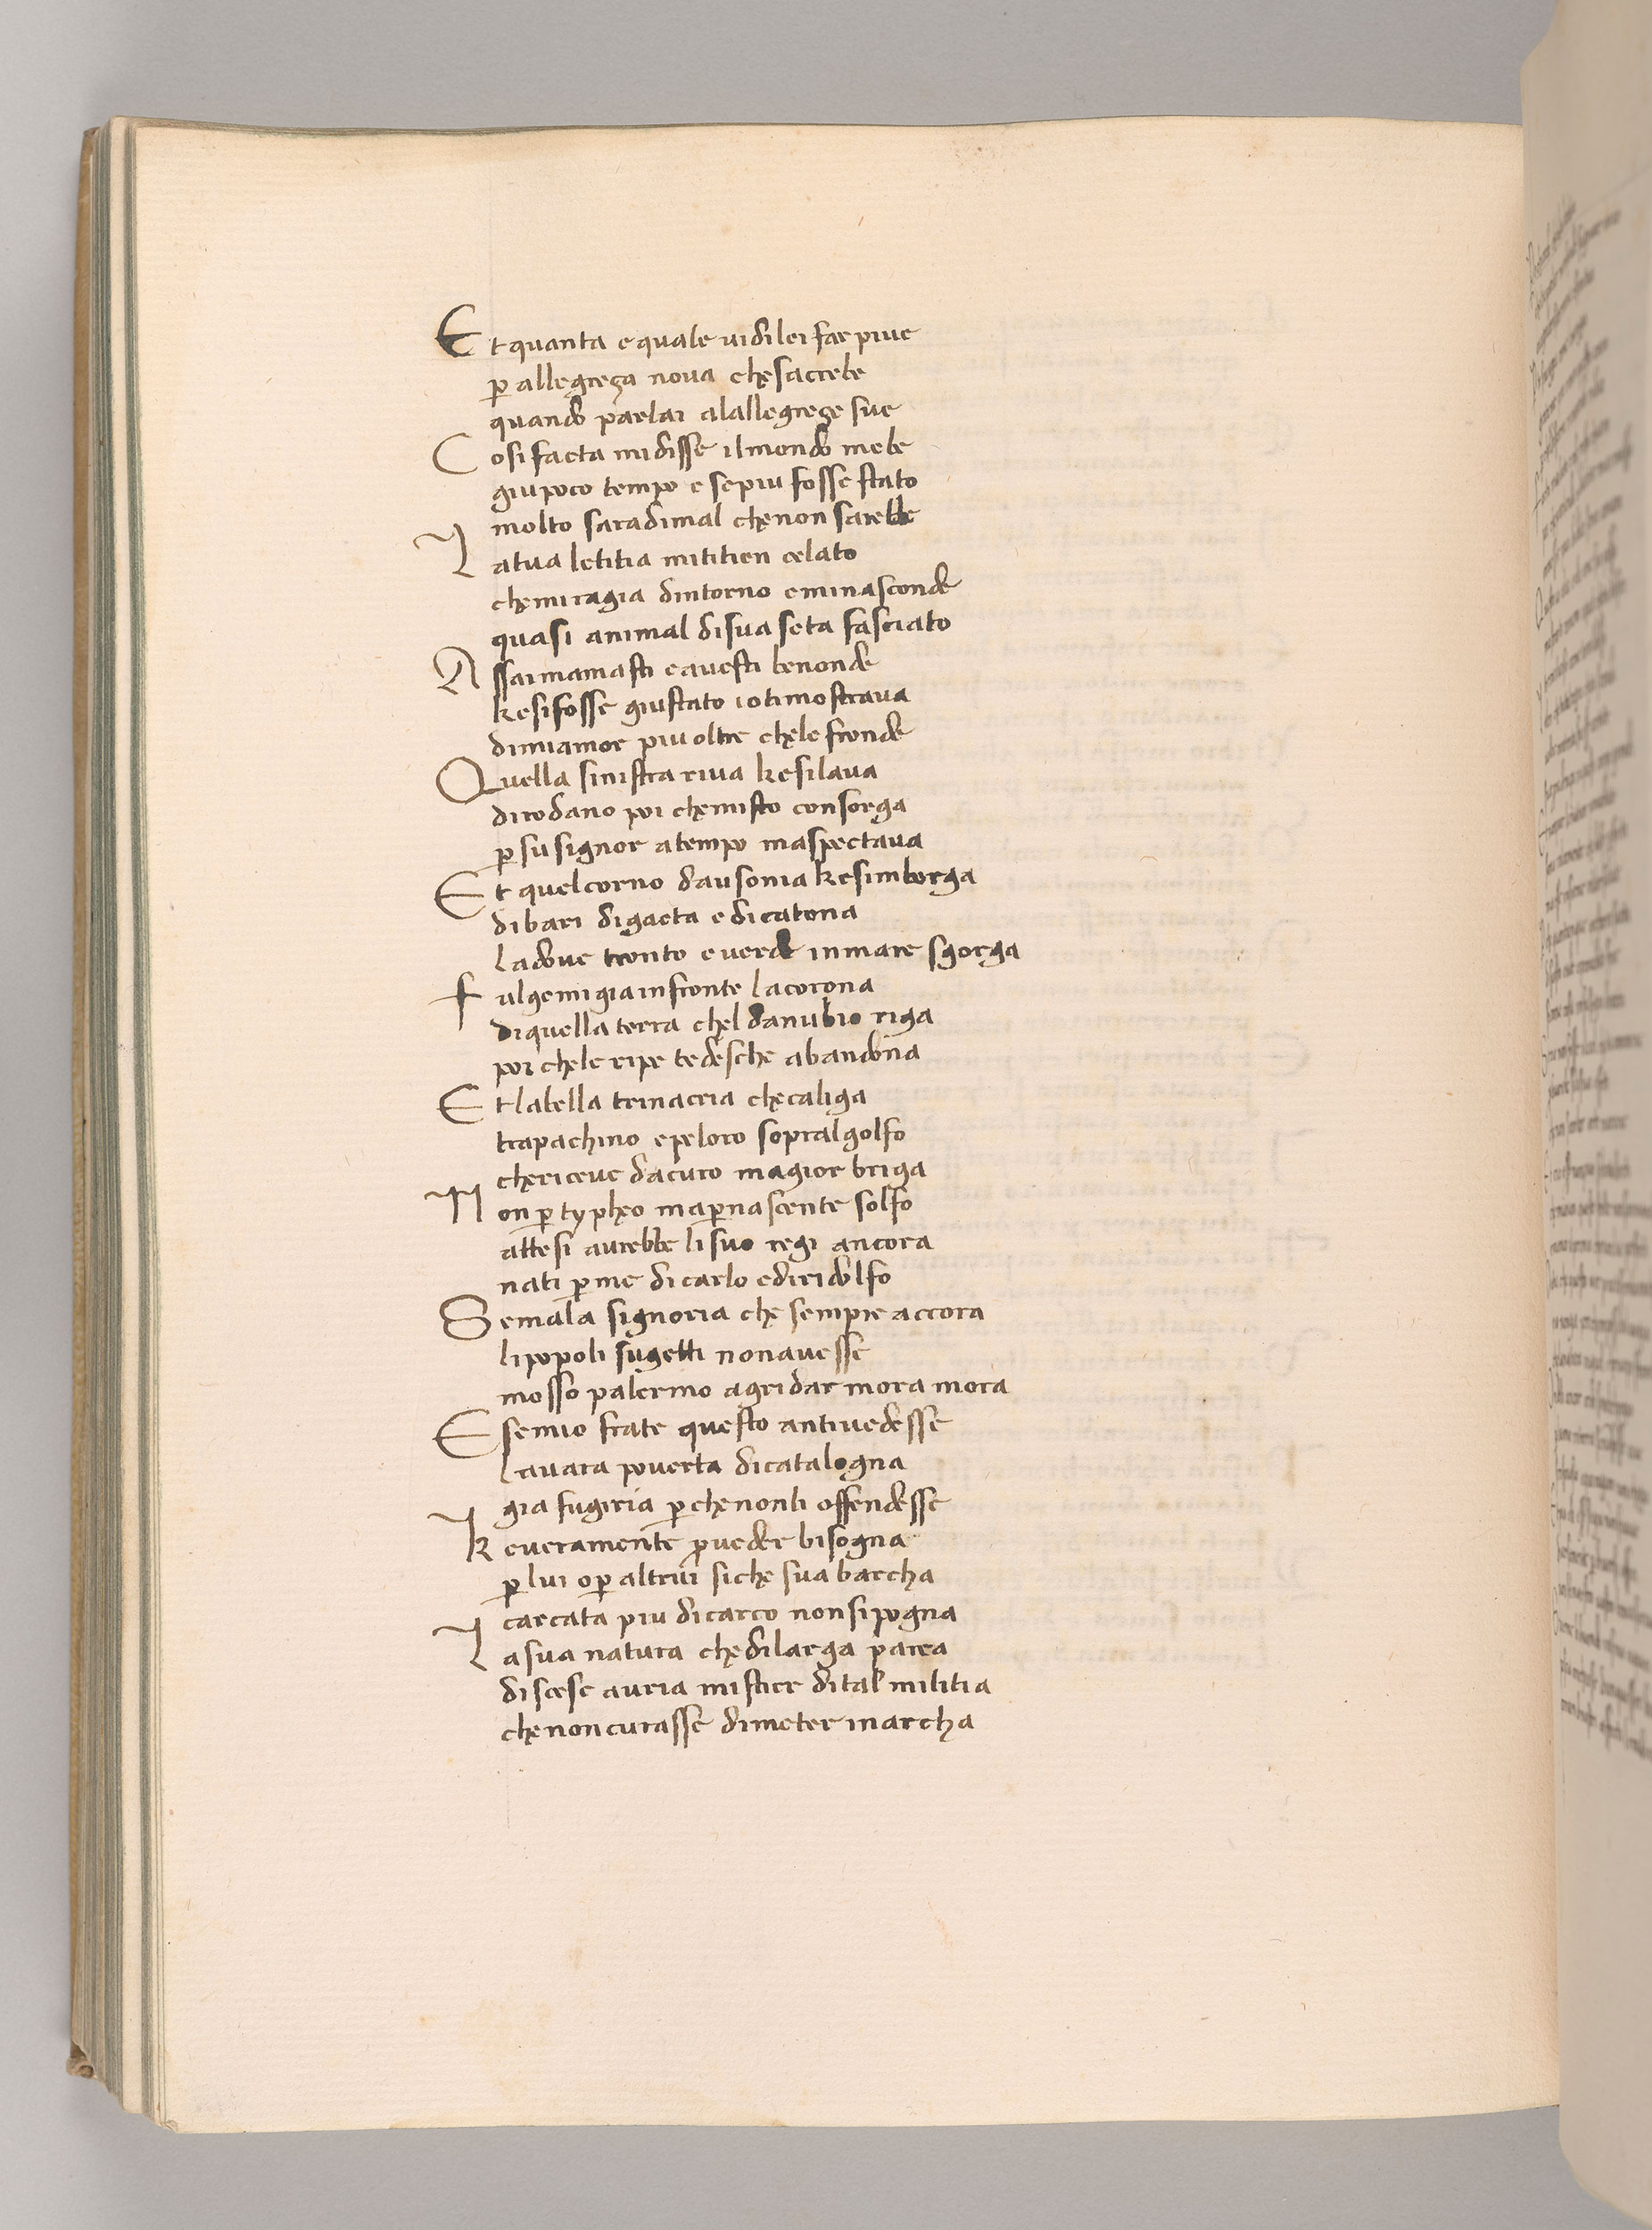 Et quanta e quale vidi lei far piue
ꝑ allegreça nova che saccrebe
quando parlai alallegreçe sue
Cosi facta midisse ilmondo mebe
giu poco tempo e sepiu fosse stato
molto saradimal che non sarebbe
Latua letitia mititien celato
chemiragia dintorno eminasconde
quasi animal disua seta fasciato
Assai mamasti eavesti benonde
kesifosse giustato iotimostrava
dimiamor piu oltre chele fronde
Quella sinistra riva kesilava
dirodano poi chemisto consorga
ꝑ su signor atempo maspectava
Et quelcorno dausonia kesimborga
dibari digaeta e dicatona
ladove tronto e verde inmare sgorga
fulgemi gia infronte lacorona
diquella terra chel danubio riga
poi chele ripe tedesche abandona
Et labella trinacria checaliga
trapachino epeloro sopralgolfo
chericeve dacuro magior briga
Non ꝑ typheo maꝑ nascente solfo
attesi avrebbe li suo regi ancora
nati ꝑ me dicarlo ediridolfo
Semala signoria che sempre accora
lipopoli sugetti nonavesse
mosso palermo agridar mora mora
E semio frate questo antivedesse
lavara poverta dicatalogna
gia fugiria ꝑ chenonli offendesse
keveramente ꝓveder bisogna
ꝑ lui oꝑ altrui siche sua barcha
carcata piu dicarco nonsipogna
La sua natura che dilarga parca
discese avria mistier dital militia
chenoncurasse dimeter inarcha